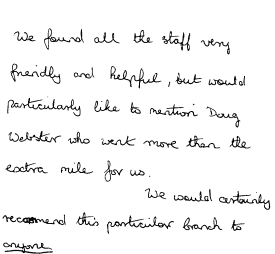 We found all the staff very
friendly and helpful, but would
particularly like to mention Doug
Webster who went more than the
extra mile for us.
We would certainly
recommend this particular branch to
anyone